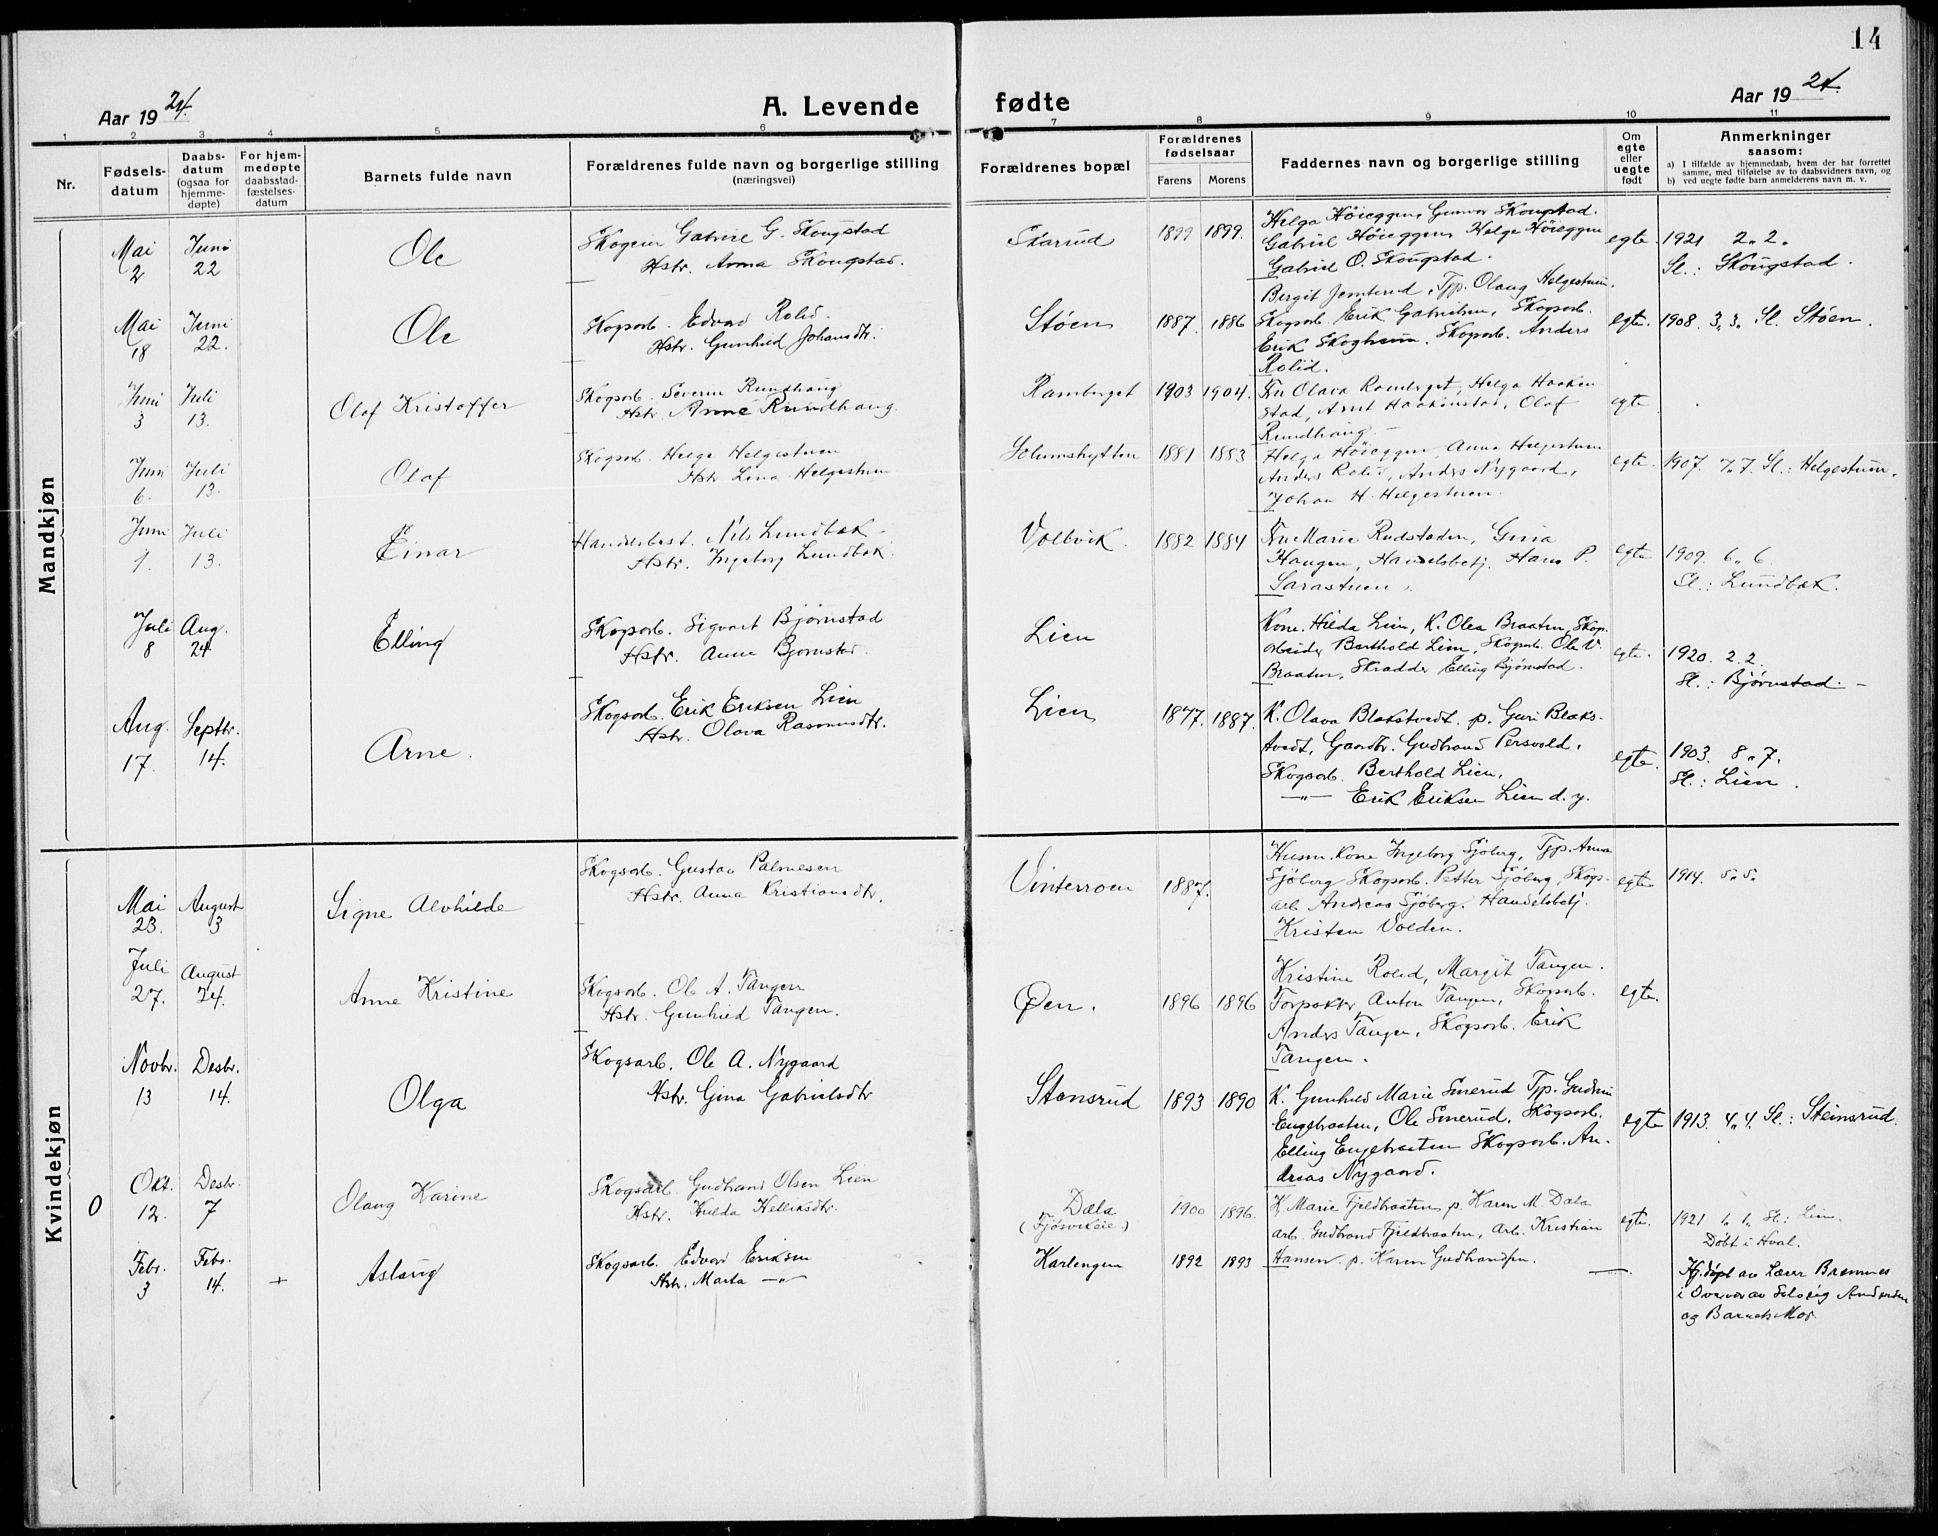 14
Aar 1924.
A. Levende fødte
Aar 1924.
1 2 3 4 5 6 7 8 9 10 11
Nr.
Fødsels-datum
Daabs-datum (ogsaa for hjemme-døpte)
For hjem-medøpte daabsstad-fæstelses-datum
Barnets fulde navn
Forældrenes fulde navn og borgerlige stilling (næringsvei)
Forældrenes bopæl
Forældrenes fødselsaar
Farens Morens
Faddernes navn og borgerlige stilling
Om egte eller uegte født
Anmerkninger saasom:
a) I tilfælde av hjemmedaab, hvem der har forrettet samme, med tilføielse av to daabsvidners navn, og
b) ved uegte fødte barn anmelderens navn m. v.
Mandkjøn
Mai 2 Juni 22 Ole
Skogeier Gabriel G. Skougstad
Hstr. Anna Skougstad.
Skarud 1899 1899.
Helga Høieggen, Gunvor Skougstad.
Gabriel Høieggen, Helge Høieggen
Gabriel O. Skougstad.
egte 1921 2. 2.
Sl.: Skougstad.
Mai 18 Juni 22. Ole
Skogsarb. Edvard Rolid.
Hstr. Gunhild Johansdtr.
Støen 1887. 1886
Bergit Jemterud, Tjp. Olaug Helgestuen,
Skogsarb. Erik Gabrielsen, Skogsarb.
Erik Skogheim, Skogsarb. Anders
Rolid.
egte. 1908. 3. 3. Sl. Støen.
Juni 3 Juli 13. Olaf Kristoffer
Skogsarb. Severin Rundhaug
Hstr. Anne Rundhaug
Ramberget 1903 1904.
Fru Olava Ramberget, Helga Haakenstad, Arnt Haakenstad, Olaf
Rundhaug.
egte
Juni 6. Juli 13. Olaf
Skogsarb. Helge Helgestuen
Hstr. Lina Helgestuen
1881 1883
Helga Høieggen, Anna Helgestuen
Anders Rolid, Anders Nygaard,
Johan H. Helgestuen.
egte. 1907. 7. 7. Sl.: Helgestuen.
Juni 1. Juli 13. Einar
Handelsbest. Nils Lundbæk
Hstr. Ingeborg Lundbæk.
Volbvik. 1882 1884
Fru Marie Rudstaden, Gina
Haugen, Handelsbetj. Hans P.
Sarastuen.
egte 1909. 6. 6.
Sl.: Lundbæk.
Juli 8 Aug. 24 Elling
Skogsarb. Sigvart Bjørnstad
Hstr. Anna Bjørnstad.
Lien
Kone. Hilda Lien, K. Olea Braaten, Skogs-
arbeider Berthold Lien, Skogsarb. Ole V.
Braaten, Skradder Elling Bjørnstad.
egte. 1920. 2. 2.
Sl.: Bjørnstad. –
Aug. 17. Septbr. 14. Arne.
Skogsarb. Erik Eriksen Lien
Hstr. Olava Rasmusdtr.
Lien 1877. 1887.
K. Olava Blakstvedt. p. Guri Blaks-
tvedt, Gaardbr. Gudbrand Persvold,
Skogsarb. Berthold Lien,
—"— Erik Eriksen Lien d. y.
egte. 1903. 8. 7.
Sl.: Lien.
Kvindekjøn
Mai 23. August 3 Signe Alvhilde
Skogsarb. Gustav Palmesen
Hstr. Anna Kristiansdtr.
Vinterroen 1887.
Husm. Kone Ingeborg Sjøberg, Tjp. Anna
Sjøberg Skogsarb. Petter Sjøberg, Skogs-
arb. Andreas Sjøberg. Handelsbetj.
Kristen Volden.
egte 1914. 5. 5.
Juli 27. August 24. Anne Kristine
Skogsarb. Ole A. Tangen
Hstr. Gunhild Tangen.
Øen. 1896 1896
Kristine Rolid, Margit Tangen.
Anton Tangen, Skogsarb.
Anders Tangen, Skogsarb. Erik
Tangen.
egte.
Novbr. 13 Desbr. 14. Olga
Skogsarb. Ole A. Nygaard
Hstr. Gina Gabrielsdtr
Stensrud 1893 1890
K. Gunhild Marie Smerud Tjp. Gudrun
Engebraaten, Ole Smerud, Skogsarb.
Elling Engebraaten Skogsarb. An-
dreas Nygaard.
egte 1913. 4. 4. Sl.: Steinsrud.
0 Okt. 12. Desbr. 7 Olaug Karine
Skogsarb. Gudbrand Olsen Lien
Hstr. Hulda Helliksdtr.
Dala (Fjøsvikeie) 1900 1896.
K. Marie Fjeldbraaten, p. Karen M. Dala
Arb. Gudbrand Fjeldbraaten, Arb. Kristian
Hansen. p. Karen
egte. 1921 1. 1. Sl.: Lien.
Døbt i Hval.
Febr. 3 Febr. 14. + Aslaug
Skogsarb. Edvard Eriksen
Hstr. Marta —"—
Karlengen 1892 1893
Hj. døpt av Lærer Bremnes
i Overvær av Solveig Andersen
og Barnets Mor.